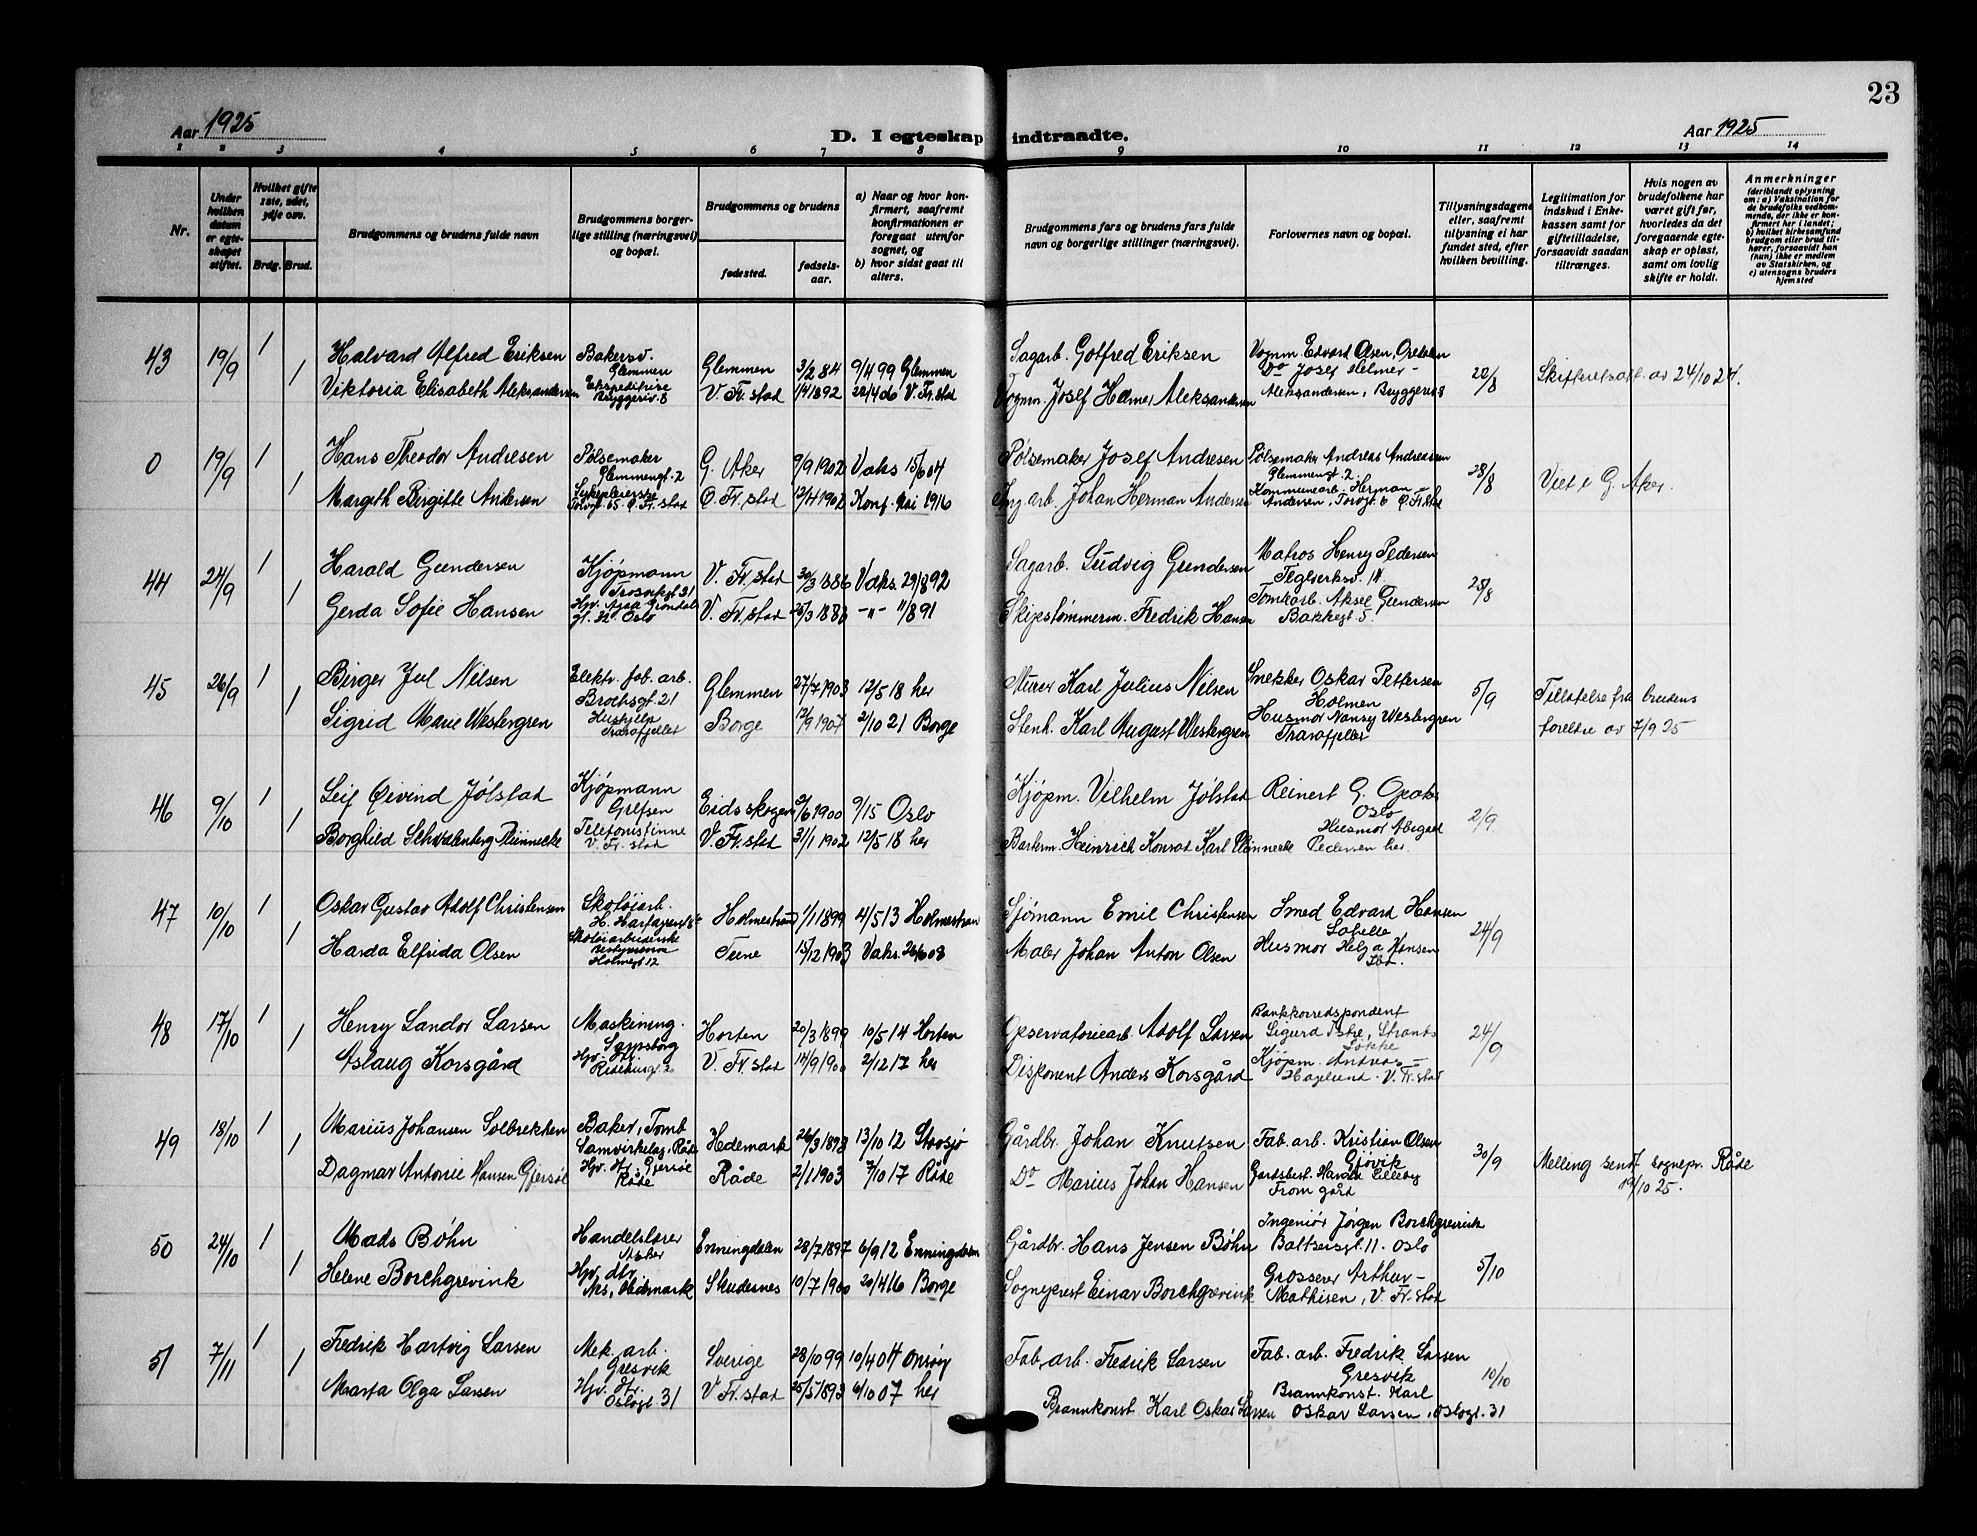 23
Aar 1925
D. I egteskap indtraadte.
Aar 1925
1 2 3 4 5 6 7 8 9 10 11 12 13 14
Nr.
Under hvilken datum er egteskapet stiftet.
Hvilket gifte 1ste, 2det, 3dje osv.
Brdg. Brud.
Brudgommens og brudens fulde navn
Brudgommens borgerlige stilling (næringsvei) og bopæl.
Brudgommens og brudens
fødested.
fødselsaar.
a) Naar og hvor konfirmert, saafremt konfirmationen er foregaat utenfor sognet, og
b) hvor sidst gaat til alters.
Brudgommens fars og brudens fars fulde navn og borgerlige stillinger (næringsvei).
Forlovernes navn og bopæl.
Tillysningsdagene eller, saafremt tillysning ei har fundet sted, efter hvilken bevilling.
Legitimation for indskud i Enkekassen samt for giftetilladelse, forsaavidt saadan tiltrænges.
Hvis nogen av brudefolkene har været gift før, hvorledes da det foregaaende egteskap er opløst, samt om lovlig skifte er holdt.
Anmerkninger
(deriblandt oplysning om: a) Vaksination for de brudefolks vedkommende, der ikke er konfirmert her i landet; b) hvilket kirkesamfund brudgom eller brud tilhører, forsaavidt han (hun) ikke er medlem av Statskirken, og c) utensogns bruders hjemsted
43 19/9 1 Halvard Alfred Eriksen Bakersv. Glemmen Glemmen 3/2 84 9/4 99 Glemmen Sagarb. Gotfred Eriksen Vognm Edvard Olsen, 20/8 Skifteretsatt. av 24/10 24.
1 Viktoria Elisabeth Aleksandersen Ekspeditrise Bryggeriv. 8 V. Fr. stad 1/4 1892 22/4 06 V. Fr. stad Vognm. Josef Helmer Aleksandersen Do Josef Helmer Aleksandersen, Bryggeriv 8
0 19/9 1 Hans Theodor Andresen Pølsemaker Glemmengt. 2 G. Aker 9/9 1902 Vaks 15/6 04 Pølsemaker Josef Andresen Pølsemaker Andreas Andreassen Glemmengt. 2 28/8 Viet i G. Aker.
1 Margith Birgitte Andersen Sykepleierske Torvgt. 65 Ø. Fr. stad Ø. Fr. stad 12/4 1902 Konf. Mai 1916 Ing. arb. Johan Herman Andersen Kommunearb. Herman Andersen, Torvgt. 6 Ø. Fr. stad
44 24/9 1 Harald Gundersen Kjøpmann Trosvikgt 21 V. Fr. stad 30/3 1886 Vaks. 29/8 92 Sagarb. Ludvig Gundersen Matros Henry Pedersen Teglverksv. 14 25/8
1 Gerda Sofie Hansen Hjv. V. Fr. stad 25/3 1886 -"- 11/8 91 Skipstømmerm. Fredrik Hansen Tomtearb. Aksel Gundersen Bakkegt. 5.
45 26/9 1 Birger Jul Nilsen Elektr. fab. arb. Brochsgt. 21 Glemmen 27/7 1903 12/5 18 her Murer Karl Julius Nilsen Snekker Oskar Pettersen Holmen 5/9 Tillatelse fra brudens
1 Sigrid Marie Westergren Hushjelp Trarafjellet Borge 12/9 1907 2/10 21 Borge Stenh. Karl August Westergren Husmor Nancy Westergren Trarafjellet foreldre av 7/9 25
46 9/10 1 Leif Øivind Jølstad Kjøpmann Grefsen Eidsskogen 2/6 1900 9/15 Oslo Kjøpm. Vilhelm Jølstad Reinert G. Oslo 2/9.
1 Borghild Schvalenberg Plünnecke Telefonistinne V. Fr. stad V. Fr. stad 31/1 1902 12/5 18 her Heinrich Konrad Karl Plünnecke Husmor Abigael Pedersen her.
47 10/10 1 Oskar Gustav Adolf Christensen Skotøiarb. Holmestrand 1/1 1899 4/5 13 Holmestran Sjømann Emil Christensen Smed Edvard Hansen 24/9
1 Harda Elfrida Olsen Skotøiarbeiderske Holmegt 12 Tune 15/12 1903 Vaks. 26/6 08 Maler Johan Anton Olsen Husmor Helga Hansen Ibd.
48 17/10 1 Henry Sandor Larsen Maskining. Sarpsborg Horten 20/3 1899 10/5 14 Horten Opservatoriearb. Adolf Larsen Bankkorrespondent Sigurd 24/9
1 Aslaug Korsgård Hjv. dtr. V. Fr. stad 14/9 1900 2/12 17 her Disponent Anders Korsgård Kjøpm. Andreas Haglund. V. Fr. stad
49 18/10 1 Marius Johansen Solbrekken Baker, Tomb Samvirkelag, Råde Hedemark 26/3 1898 13/10 12 Stavsjø Gårdbr. Johan Knutsen Fab. arb. Kristian Olsen Gjøvik 30/9 Melling sendt sognepr. Råde 19/10 25.
1 Dagmar Antonie Hansen Gjersøe Hjv. dtr. Gjersøe Råde Råde 2/1 1903 7/10 17 Råde Do Marius Johan Hansen Gardsbest. Harald Lilleby From gård
50 24/10 1 Mads Bøhn Handelslærer Asker Enningdalen 28/7 1897 6/9 12 Enningdalen Gårdbr. Hans Jensen Bøhn Ingeniør Jørgen Borchgrevink Baltsersgt. 11. Oslo 5/10
1 Helene Borchgrevink Hjv. dtr. Skudesnes 10/7 1900 20/4 16 Borge Sogneprest Einar Borchgrevink Grosserer Arthur Mathisen, V. Fr. stad
51 7/11 1 Fredrik Hartvig Larsen Mek. arb. Gresvik Sverige 28/10 99 10/4 04 Onsøy Fab. arb. Fredrik Larsen Fab. arb. Fredrik Larsen Gresvik 10/10
1 Marta Olga Larsen Hjv. dtr. Oslogt. 31 V. Fr. stad 25/5 1893 6/10 07 her Brannkonst. Karl Oskar Larsen Brannkonst. Karl Oskar Larsen, Oslogt. 31